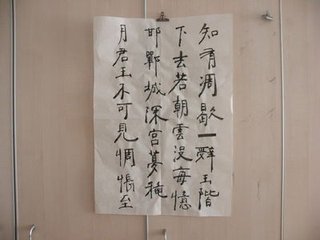 知有凋歇一辭玉階
下去若朝雲没每憶
邯鄲城深宮夢秋
月君王不可見惆悵至